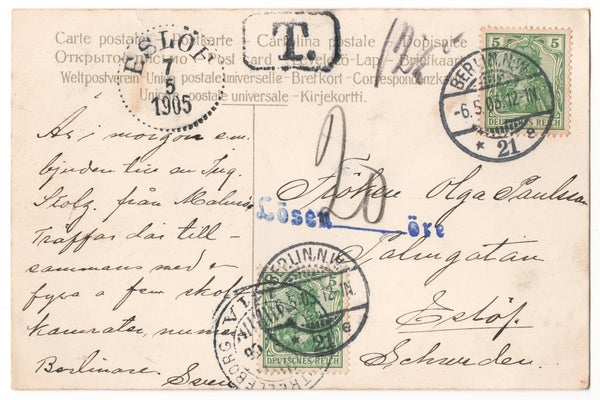 Carte postale Postkarte Cartolina postale Dopisnice
Post Card Briefkaart
Weltpostverein Union postale universelle Brefkort Correspondenzkarte
Union postale universale - Kirjekortti.
T.
ESLÖF
7
5
1905
5 5
DEUTSCHES REICH
BERLIN, N.W.
-6.5.05. 12-1N
* 21 e
20
Lösen öre
Är i morgon e.m.
bjuden till en Ing.
Stolz från Malmö.
Träffas där till-
sammans med
fyra a fem skol-
kamrater, numera
Berlinare. Sven
Fröken Olga Paulsson
Palmgatan
Eslöf.
Schweden.
BERLIN, N.W.
6.5.05. 12-1N
* 21 e
DEUTSCHES REICH
TRELLEBORG